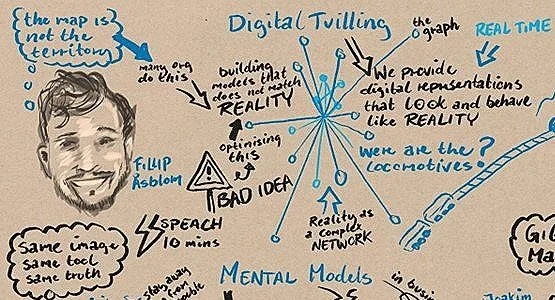 the map is
not the
territory
many org
do this
building
models that
does not match
REALITY
optimising
this
BAD IDEA
Digital Tvilling
the
graph
REAL TIME
We provide
digital representations
that LOOK and behave
like REALITY
Were are the
locomotives?
FILLIP
Åsblom
SPEACH
10 mins
Same image
same tool
same truth
Reality as
a complex
NETWORK
MENTAL MODELS
stay away
from
in busi
Joakim